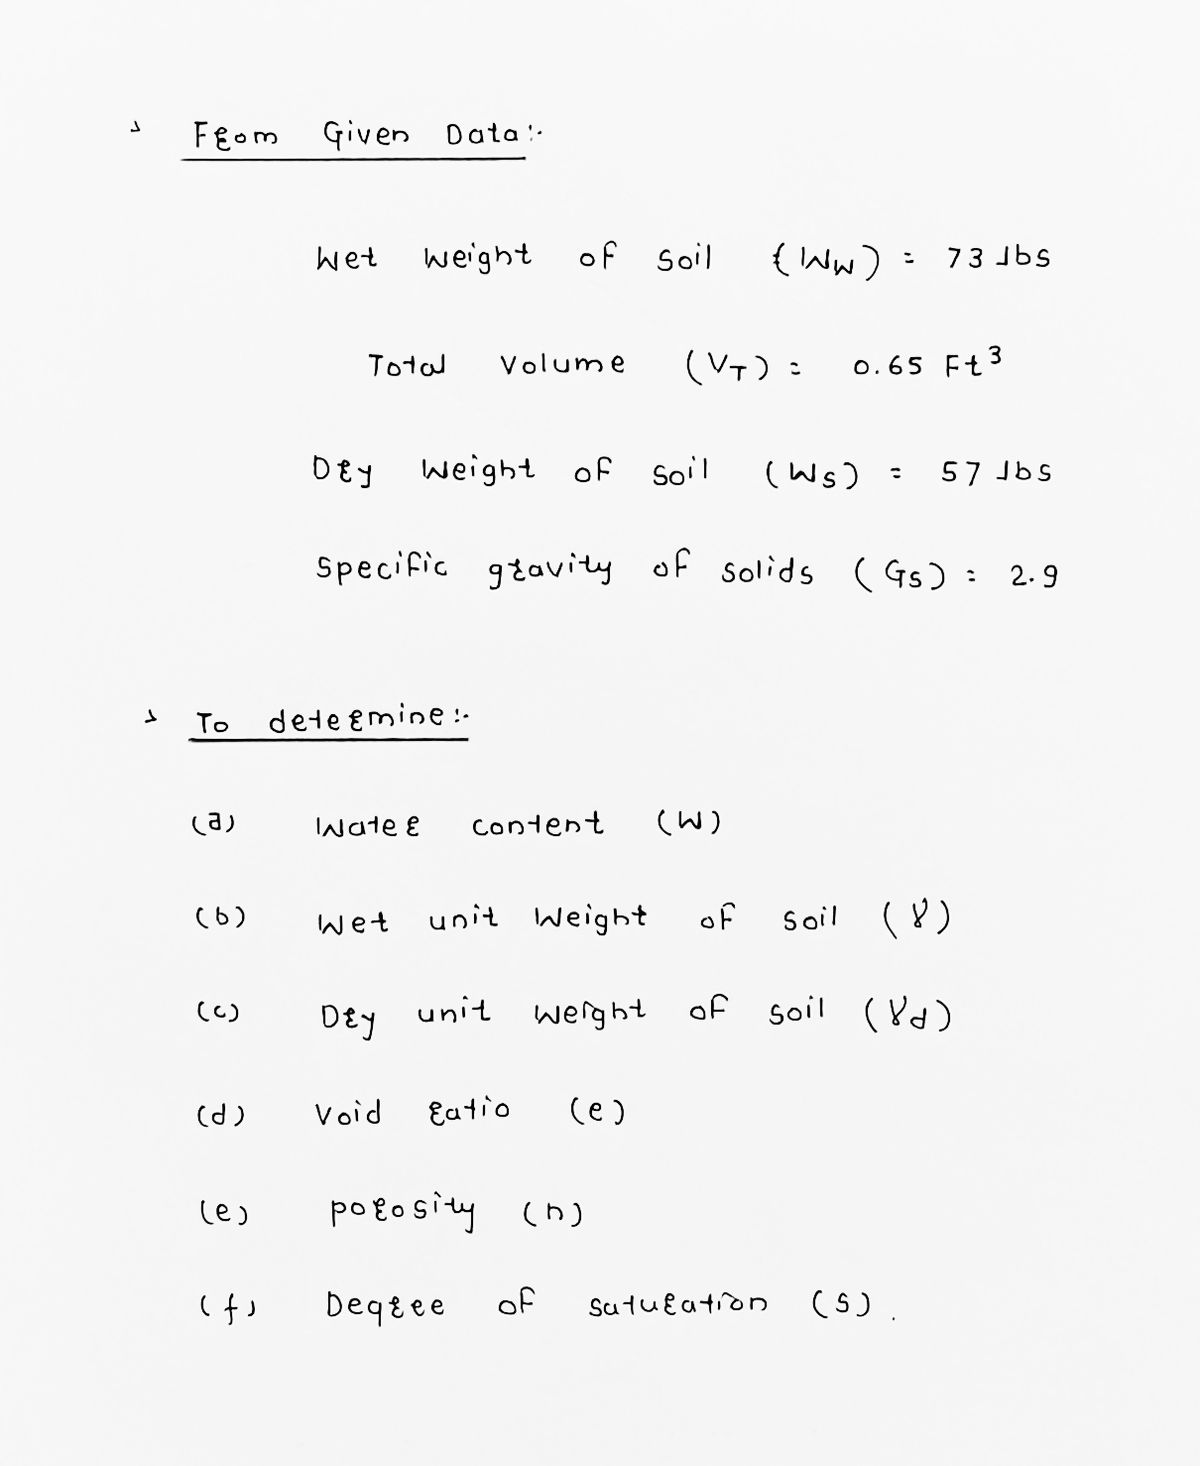 From Given Data:-
Wet Weight of soil (Ww) = 73 lbs
Total Volume (VT) = 0.65 Ft³
Dry Weight of soil (Ws) = 57 lbs
Specific gravity of solids (Gs) = 2.9
To determine:-
(a) Water content (W)
(b) Wet unit Weight of soil (γ)
(c) Dry unit Weight of soil (γd)
(d) Void ratio (e)
(e) porosity (n)
(f) Degree of saturation (S).